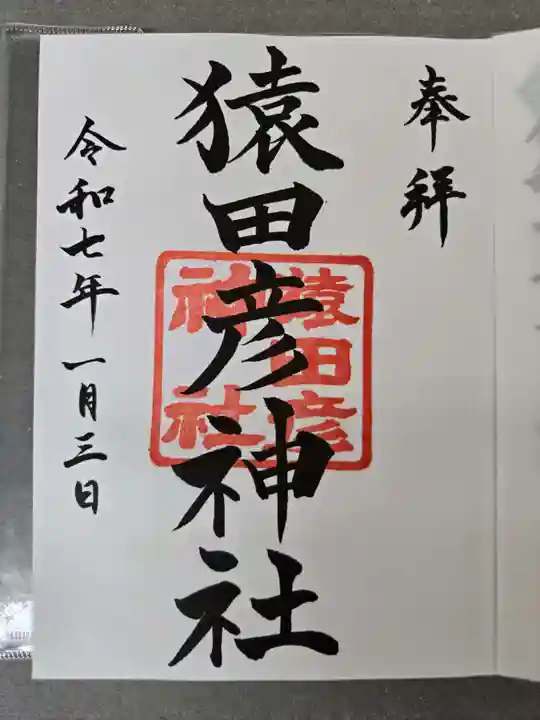 奉拝
猿田彦神社
猿田彦
神社
令和七年一月三日